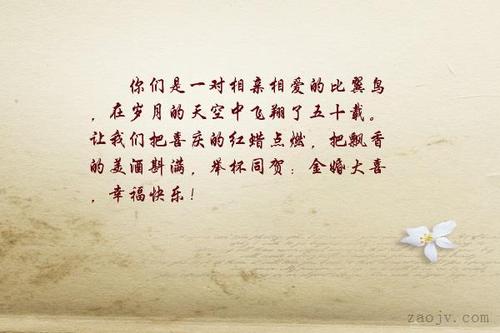 你们是一对相亲相爱的比翼鸟
，在岁月的天空中飞翔了五十载。
让我们把喜庆的红蜡点燃，把飘香
的美酒斟满，举杯同贺：金婚大喜
，幸福快乐！
zaojv.com